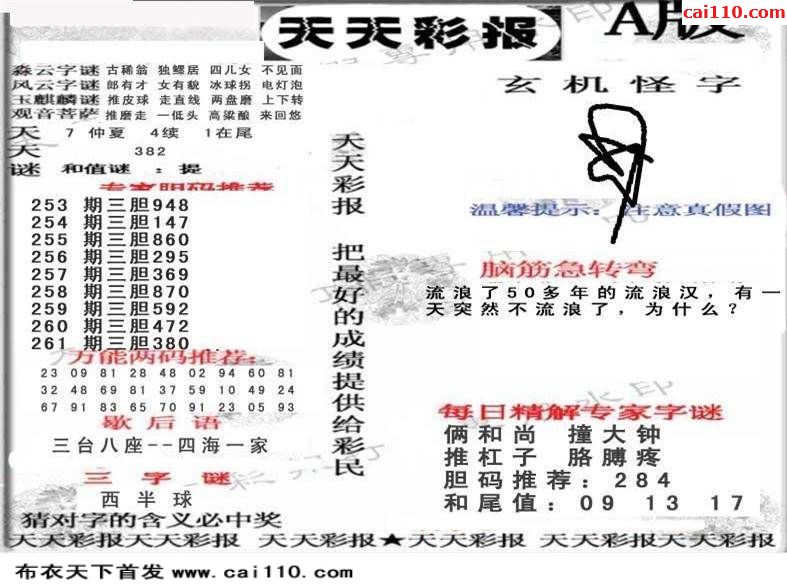 cai110.com
天天彩报
A版
淼云字谜 古稀翁 独鳏居 四儿女 不见面
风云字谜 郎有才 女有貌 冰球拐 电灯泡
玉麒麟谜 推皮球 走直线 两盘磨 上下转
观音菩萨 推磨走 一低头 高粱酿 来回悠
天 7 仲夏 4续 1在尾
天 382
谜 和值谜 : 提
专家胆码推荐
253 期三胆948
254 期三胆147
255 期三胆860
256 期三胆295
257 期三胆369
258 期三胆870
259 期三胆592
260 期三胆472
261 期三胆380
万能两码推荐:
23 09 81 28 48 02 94 60 81
32 48 69 81 37 59 10 49 24
67 91 83 65 70 91 23 05 93
歇后语
三台八座--四海一家
三字谜
西半球
猜对字的含义必中奖
天天彩报 把最好的成绩提供给彩民
玄机怪字
温馨提示: 注意真假图
脑筋急转弯
流浪了50多年的流浪汉，有一
天突然不流浪了，为什么？
每日精解专家字谜
俩和尚 撞大钟
推杠子 胳膊疼
胆码推荐: 284
和尾值: 09 13 17
天天彩报天天彩报 天天彩报★天天彩报 天天彩报
布衣天下首发 www.cai110.com